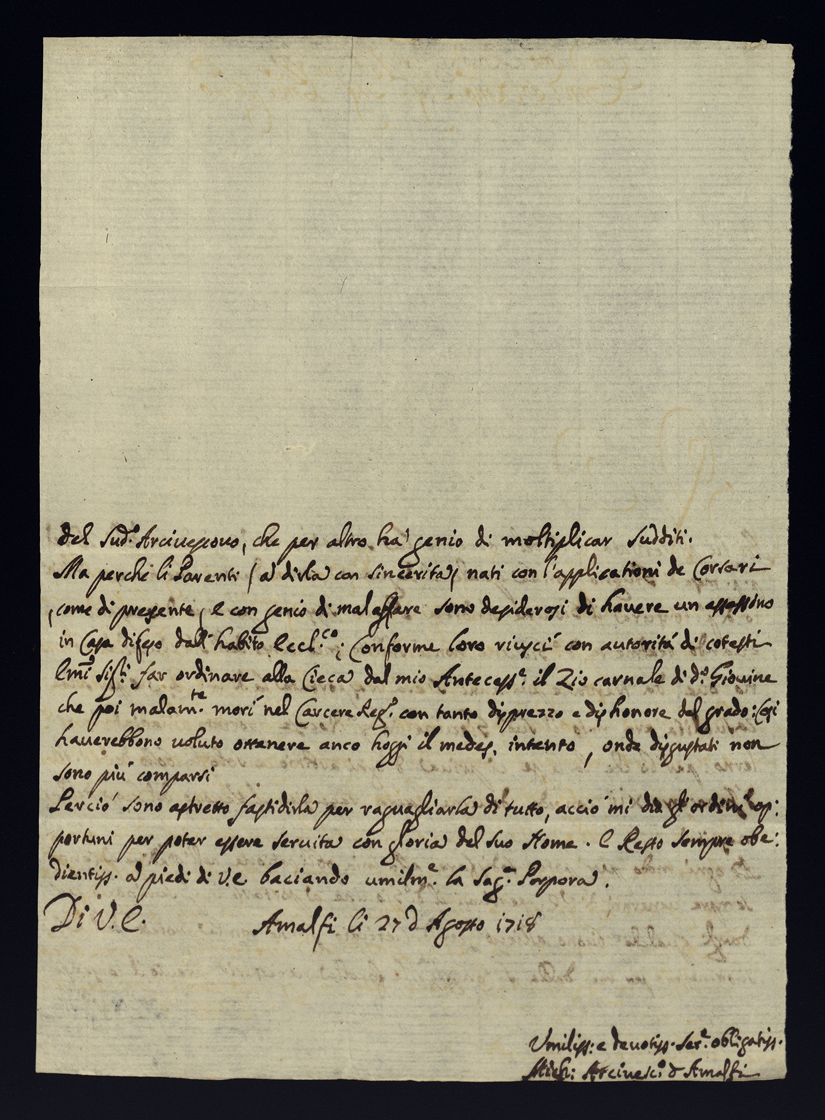 del Sud.º Arcivescovo, che per altro hà genio di moltiplicar sudditi.
Ma perche li Parenti (à dirla con sincerità) nati con l'applicationi de Corsari
come di presente, e con genio di malaffare sono desiderosi di havere un assassino
in Casa difeso dall'habito Eccl.co; Conforme loro riuscì con autorità di cotesti
far ordinare alla Cieca dal mio Antecess.e il Zio carnale di d.º Giovine
che poi malam.te morì nel Carcere Reg.º con tanto disprezzo e dishonore del grado: Così
haverebbono voluto ottenere anco hoggi il medes. intento, onde disgustati non
sono più comparsi
Perciò sono astretto fastidirla per raguagliarla di tutto, acciò mi dia gl'ordini op:
portuni per poter essere servita con gloria del suo Nome. E Resto sempre obe:
dientiss. a piedi di V.E. baciando umilm.e la Sag.a Porpora.
Di V.E. Amalfi li 27 d Agosto 1718
Umiliss: e devotiss. Ser.e obligatiss.
Mich: Arcivesc.º d Amalfi